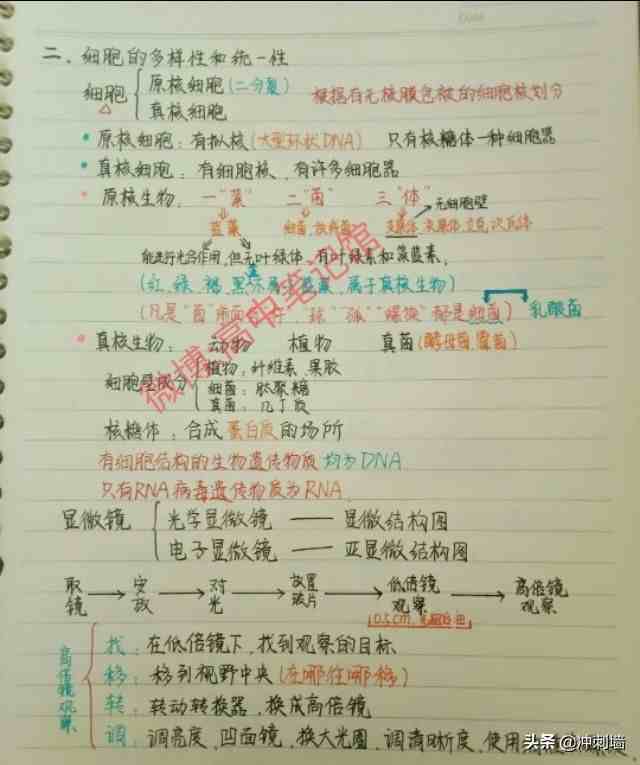 二、细胞的多样性和统一性
细胞 原核细胞(二分裂) 根据有无核膜包被的细胞核划分
真核细胞
• 原核细胞：有拟核(大型环状DNA) 只有核糖体一种细胞器
• 真核细胞：有细胞核、有许多细胞器
• 原核生物 一"藻" 二"菌" 三"体" 无细胞壁
蓝藻 细菌、放线菌 支原体、衣原体、立克次氏体
能进行光合作用,但无叶绿体,有叶绿素和藻蓝素。
(红、绿、褐、黑不属于蓝藻,属于真核生物)
(凡是"菌"前面有"杆""球""弧""螺旋"都是细菌) 乳酸菌
• 真核生物： 动物 植物 真菌(酵母菌,霉菌)
细胞壁成分 植物：纤维素、果胶
细菌：肽聚糖
真菌：几丁质
核糖体：合成蛋白质的场所
有细胞结构的生物遗传物质均为DNA
只有RNA病毒遗传物质为RNA
显微镜 光学显微镜 —— 显微结构图
电子显微镜 —— 亚显微结构图
取镜 → 安放 → 对光 → 放置玻片 → 低倍镜观察 → 高倍镜观察
0.5cm
高倍镜观察
找：在低倍镜下,找到观察的目标
移：移到视野中央(在哪往哪移)
转：转动转换器,换成高倍镜
调：调亮度,凹面镜,换大光圈,调清晰度,使用
微博:高中笔记馆
头条@冲刺墙